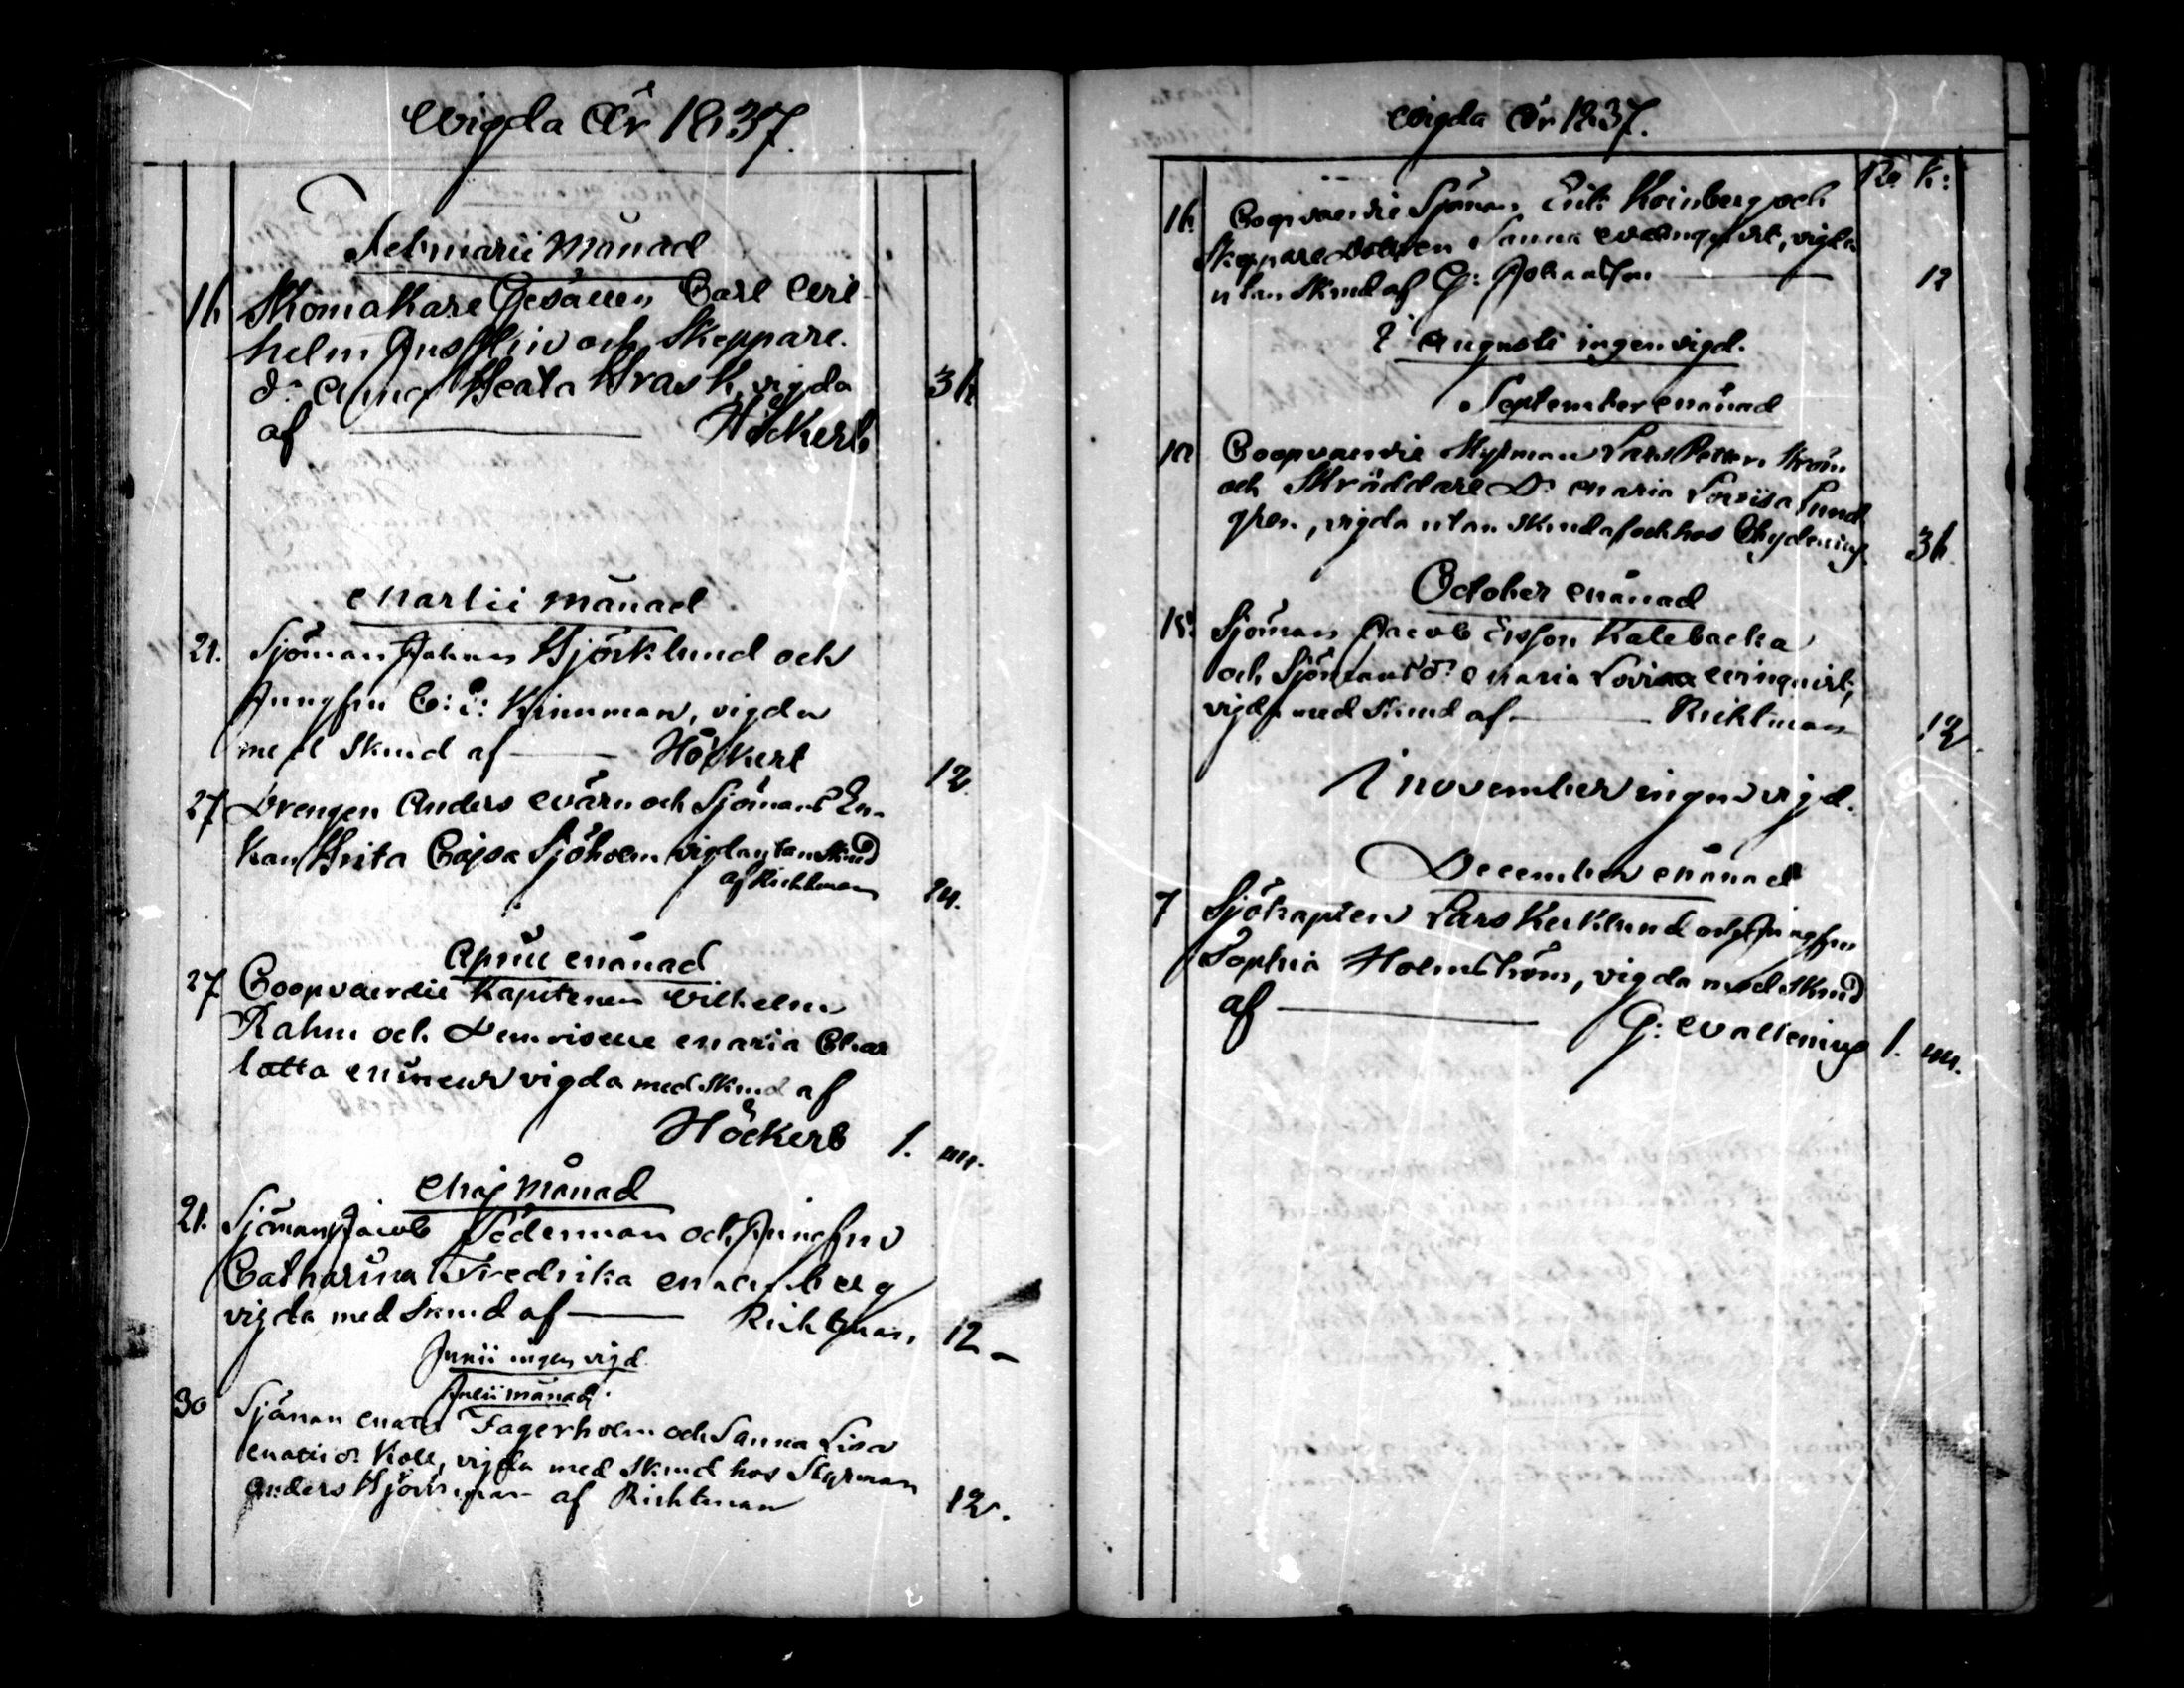 Wigda År 1837.
Februarii Månad
16 Skomakare Gesällen Carl Wil-
helm och Skeppare.
dr Anna Beata Brask, vigda 36
af Höckert
Martii månad
21. Sjöman Johan Björklund och
Jungfru C: E: Brinnman, vigda
med Skrud af Höckert 12.
27 Drengen Anders Wärn och Sjömans En-
kan Brita Cajsa Sjöholm vigda utan Skrud
af Richtman 24.
Aprill Månad
27. Coopvaerdie Kaptenen Vilhelm
Rahm och Demoiselle Maria Char
lotta vigda med Skrud af
Höckert 1. 44.
Maj Månad
21. Sjöman Jacob Söderman och Jungfru
Catharina Fredrika Malmberg
vigda med Skrud af Richtman, 12 –
Junii ingen vigd.
Julii månad.
30 Sjöman Matts Fagerholm och Sanna Lisa
Mattsdr Koll, vigda med Skrud hos Styrman
Anders Björkman af Richtman 12.
Wigda År 1837.
R. k:
16. Coopvaerdie Sjöman Erik Kronberg och
Skeppare Dottren Sanna Wallenqvist, vigda
utan Skrud af G: Johansson 12
I Augusti ingen vigd.
September Månad
Coopvaerdie Styrman Lars Petter Ström
och Skräddare Dr Maria Lovisa Lund
gren, vigda utan Skrud af och hos Chydenius 36.
October Månad
18. Sjöman Jacob Ersson Kalebacka
och Sjömans dr Maria Lovisa Winqvist,
vigda med Skrud af Richtman 12.
I november ingen vigd.
December Månad
7 Sjökapten Lars Kecklund och Jungfru
Sophia Holmström, vigda med Skrud
af G: Wallenius 1. 44.